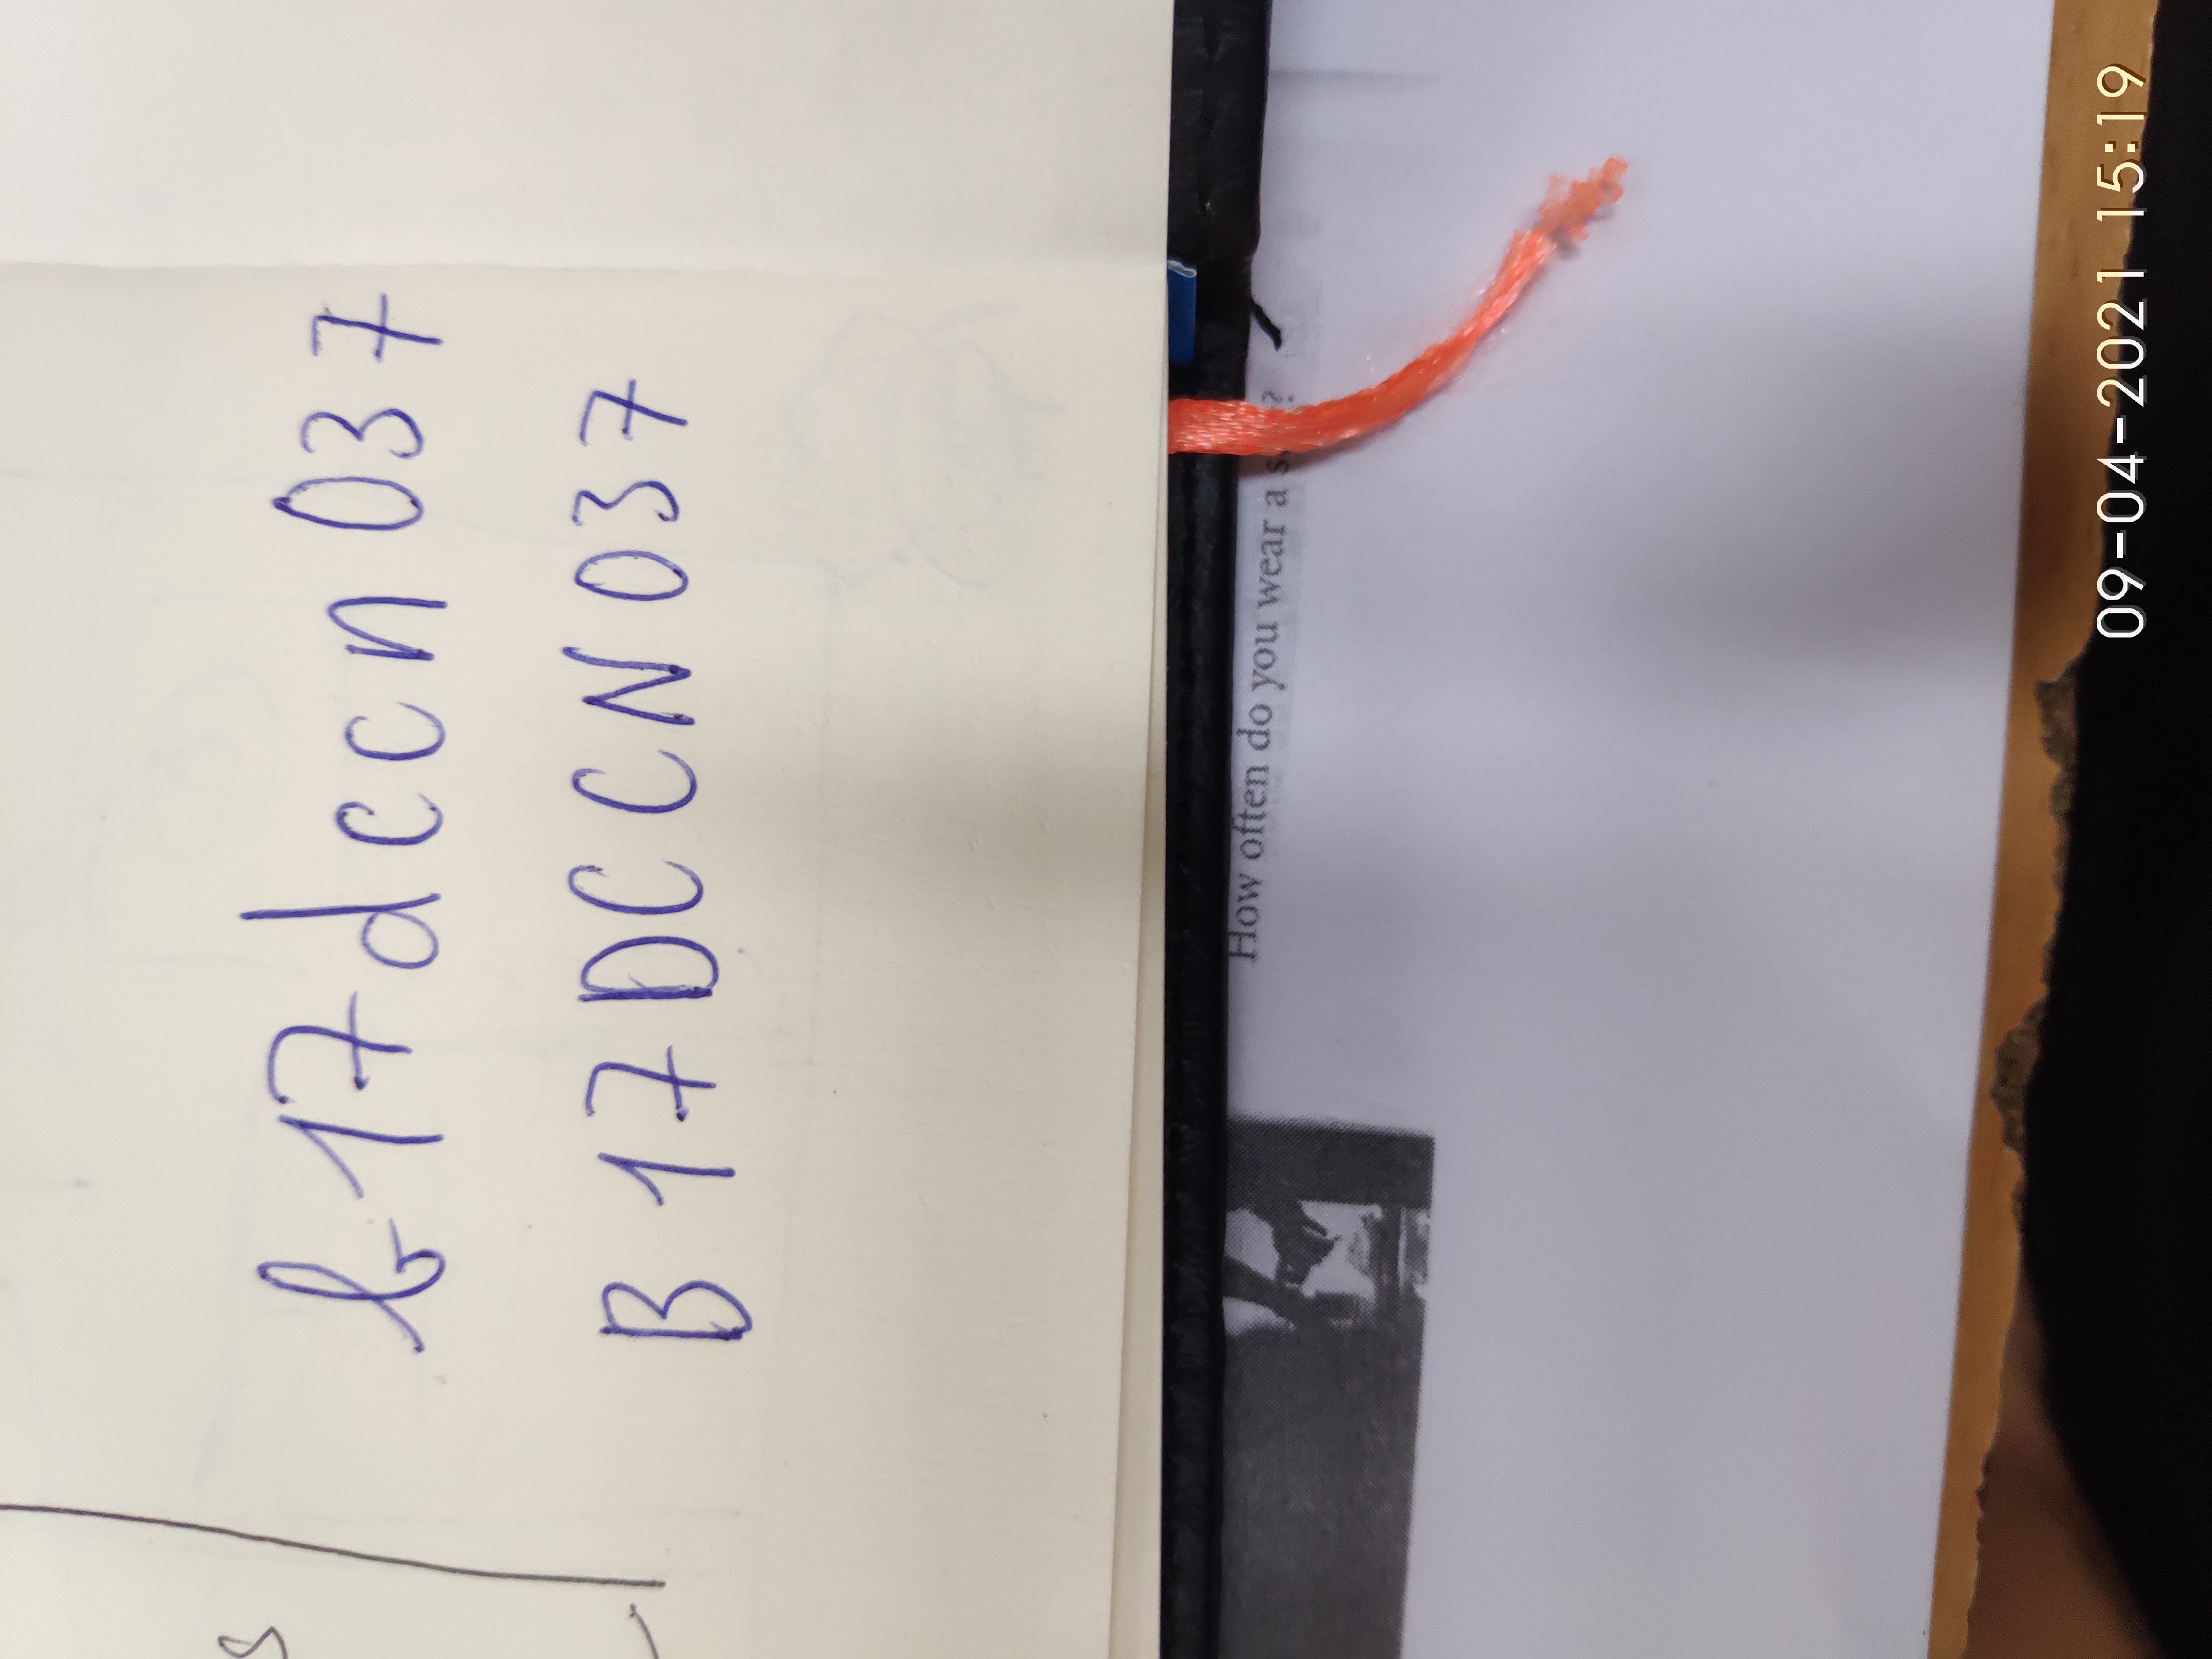 s
b17dccn037
B17DCCN037
How often do you wear a
09-04-2021 15:19